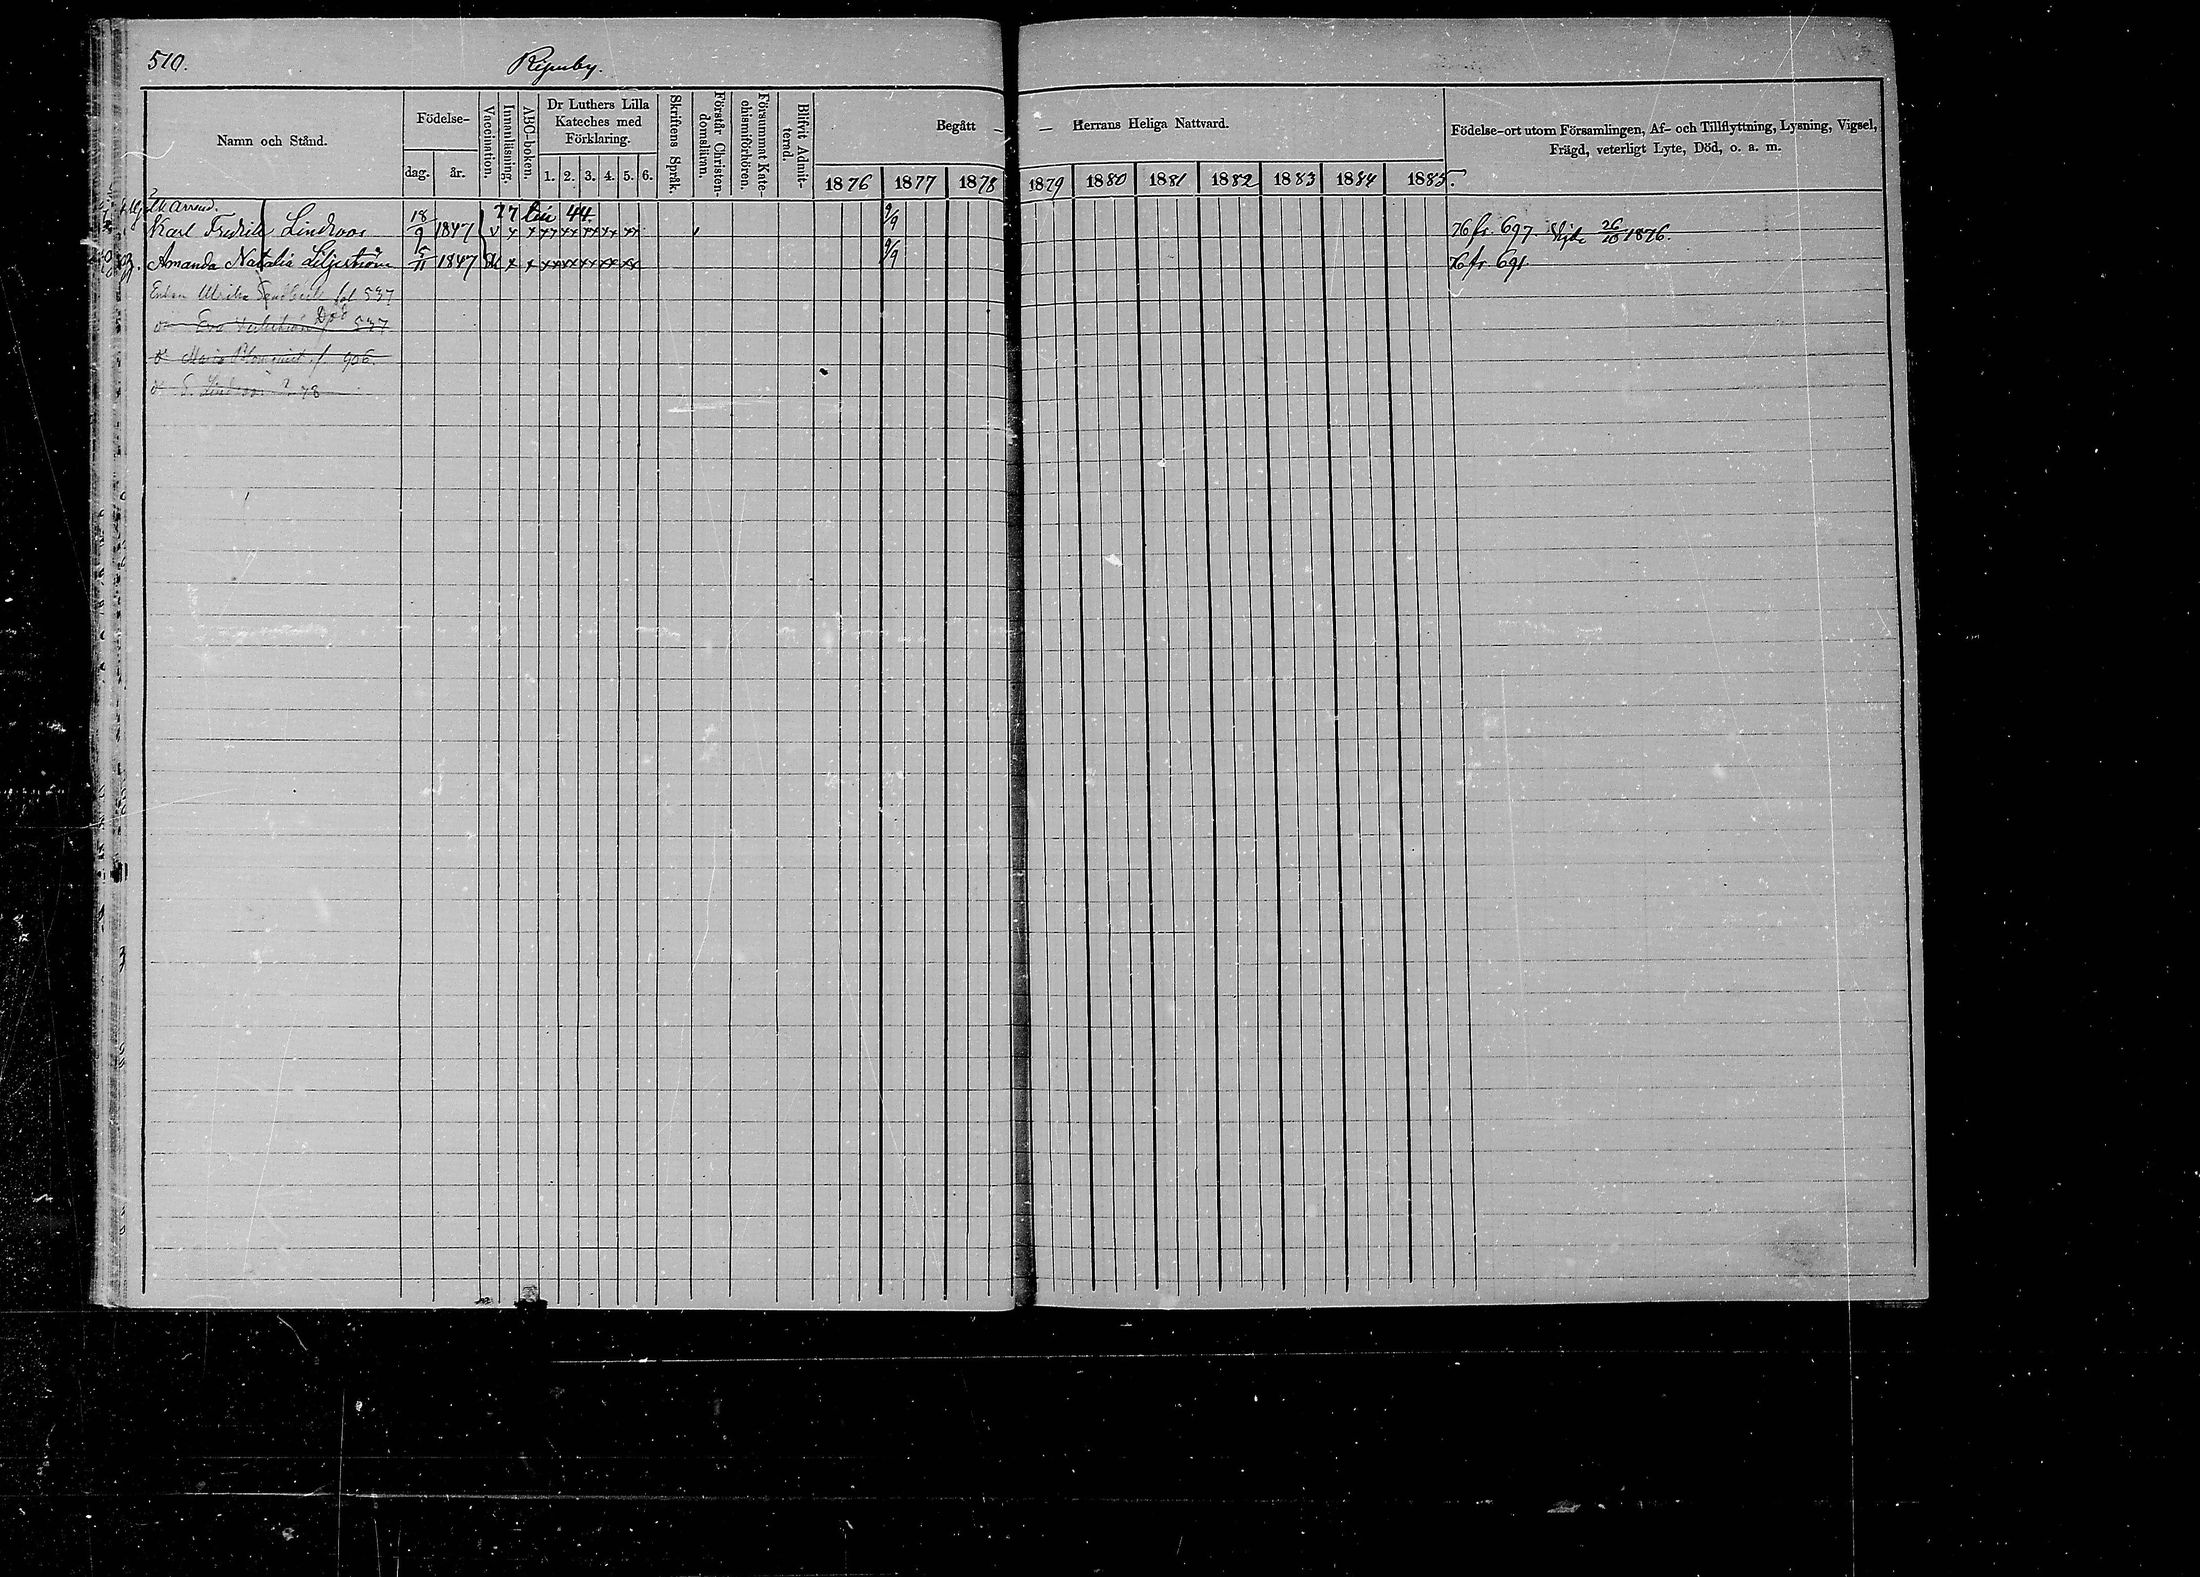 510.
Namn och Stånd.
Födelse-
dag.
år.
Vaccination.
Innanläsning.
ABC-boken.
Dr Luthers Lilla
Kateches med
Förklaring.
1. 2. 3. 4. 5. 6.
Skriftens Språk.
Förstår Christen-
domsläran.
Försummat Kate-
chismiförhören.
Blifvit Admit-
terad.
Begått — — Herrans Heliga Nattvard.
1876 1877 1878 1879 1880 1881 1882 1883 1884 1885.
Födelse-ort utom Församlingen, Af- och Tillflyttning, Lysning, Vigsel,
Frägd, veterligt Lyte, Död, o. a. m.
77 till 44.
Karl Fredrik Lindroos 18/9 1847 9/9 76 fr. 697. Vigde 26/10 1876.
Amanda Natalia Liljeström 5/11 1847 9/9 76 fr 691
Enkan Ulrika fol 537
Eva Död 537
Maria Blomqvist f. 906.
78